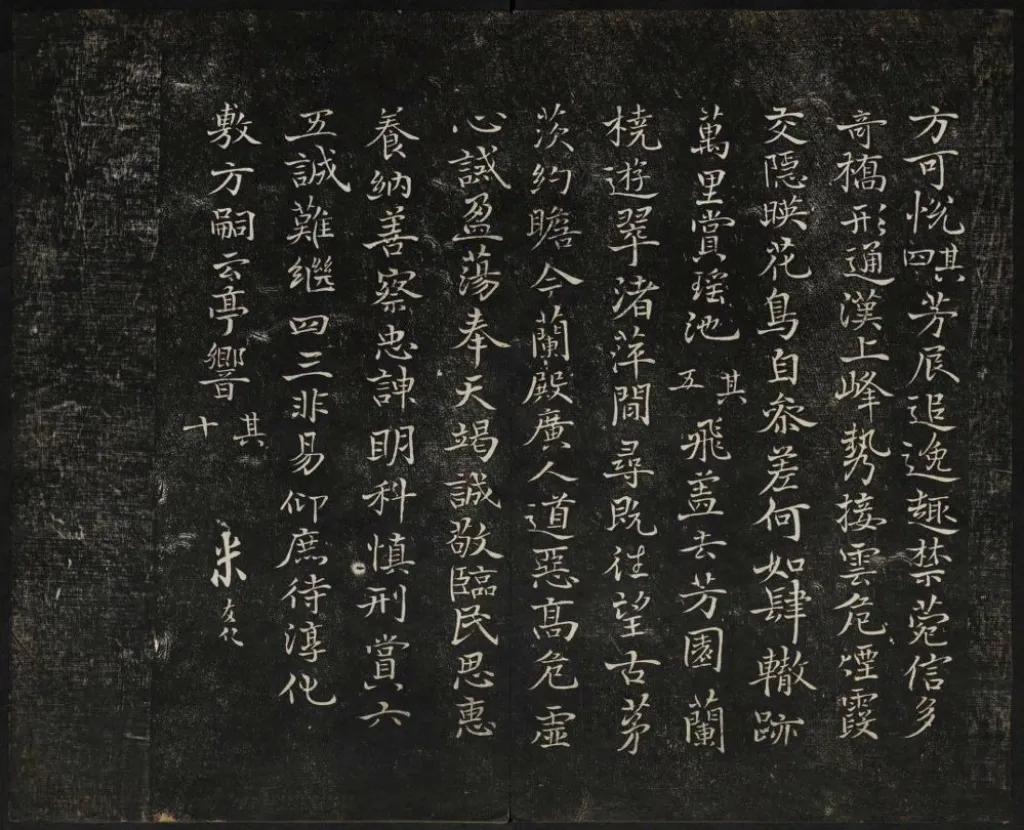 方可悅其四芳辰追逸趣禁菀信多
奇橋形通漢上峰勢接雲危煙霞
交隱暎花鳥自叅差何如肆轍跡
萬里賞瑤池其五飛盖去芳園蘭
橈遊翠渚萍間尋既往望古茅
茨約瞻今蘭殿廣人道惡髙危虛
心誡盈蕩奉天竭誠敬臨民思惠
養納善察忠諫明科慎刑賞六
五誠難繼四三非易仰庶待淳化
敷方嗣云亭響其十
米